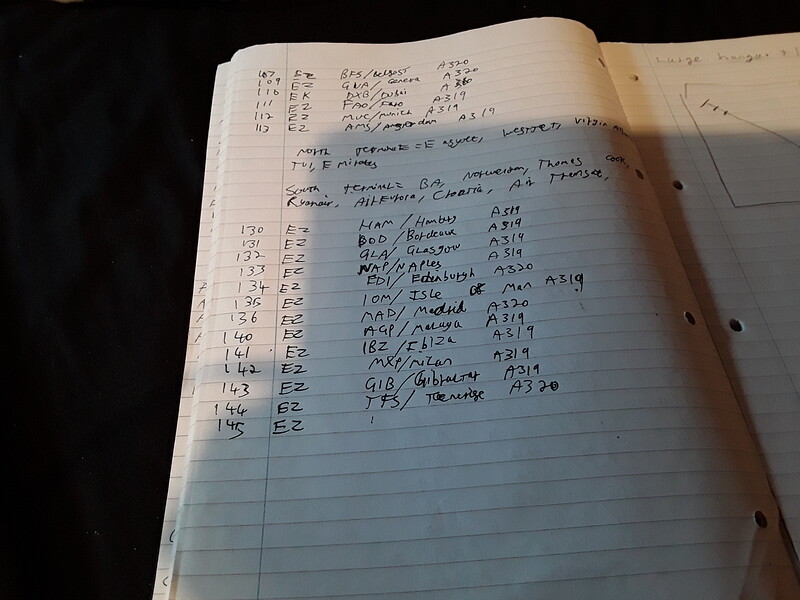 107 EZ BFS/Belgast A320
109 EZ GVA/Geneva A320
110 EK DXB/Dubai
111 EZ FAO/Faro A319
112 EZ MUC/munich A319
113 EZ AMS/ A319
North terminal = Easyjet, Westjet, Virgin
TUI, Emirates
South terminal = BA, Norwegian, Thomas cook,
Ryanair, Air Europa, Croatia, Air Transat,
130 EZ HAM/Hamburg A319
131 EZ BOD/Bordeaux A319
132 EZ GLA/Glasgow A319
133 EZ NAP/Naples A319
134 EZ EDI/Edenburgh A320
135 EZ IOM/Isle of Man A319
136 EZ MAD/Madrid A320
140 EZ AGP/Malaga A319
141 EZ IBZ/Ebiza A319
142 EZ MXP/milan A319
143 EZ GIB/Gibraltar A319
144 EZ TFS/ A320
145 EZ
Large hangar